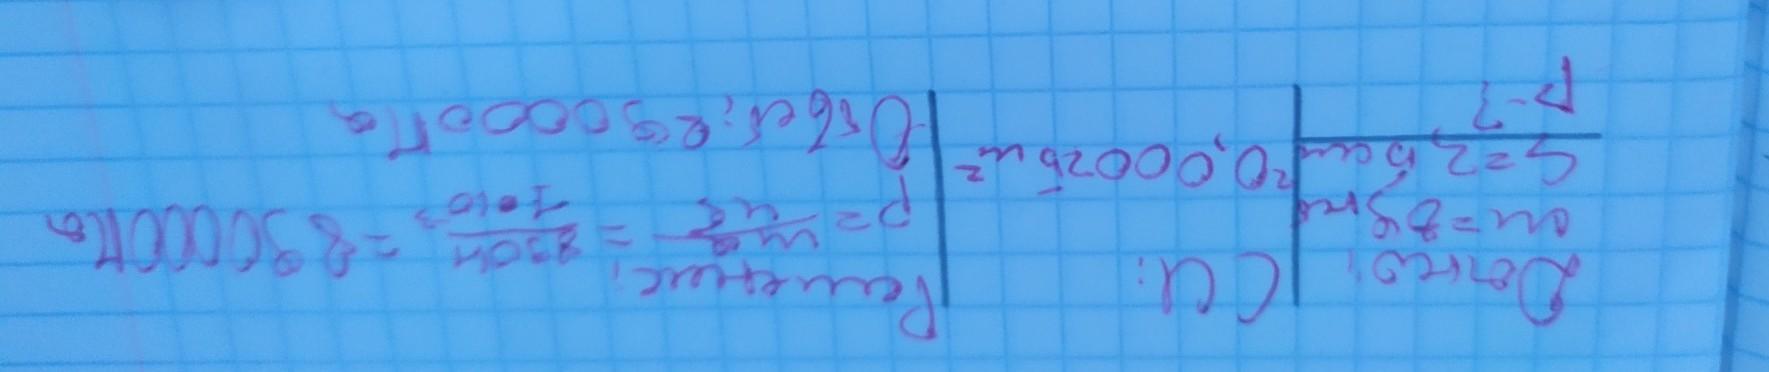 Дано:
m=89кг
S=2,5см²
P-?
СИ:
=0,00025м²
Решение:
P= = 890Н / 1·10⁻³ = 890000Па
Ответ: 890000Па